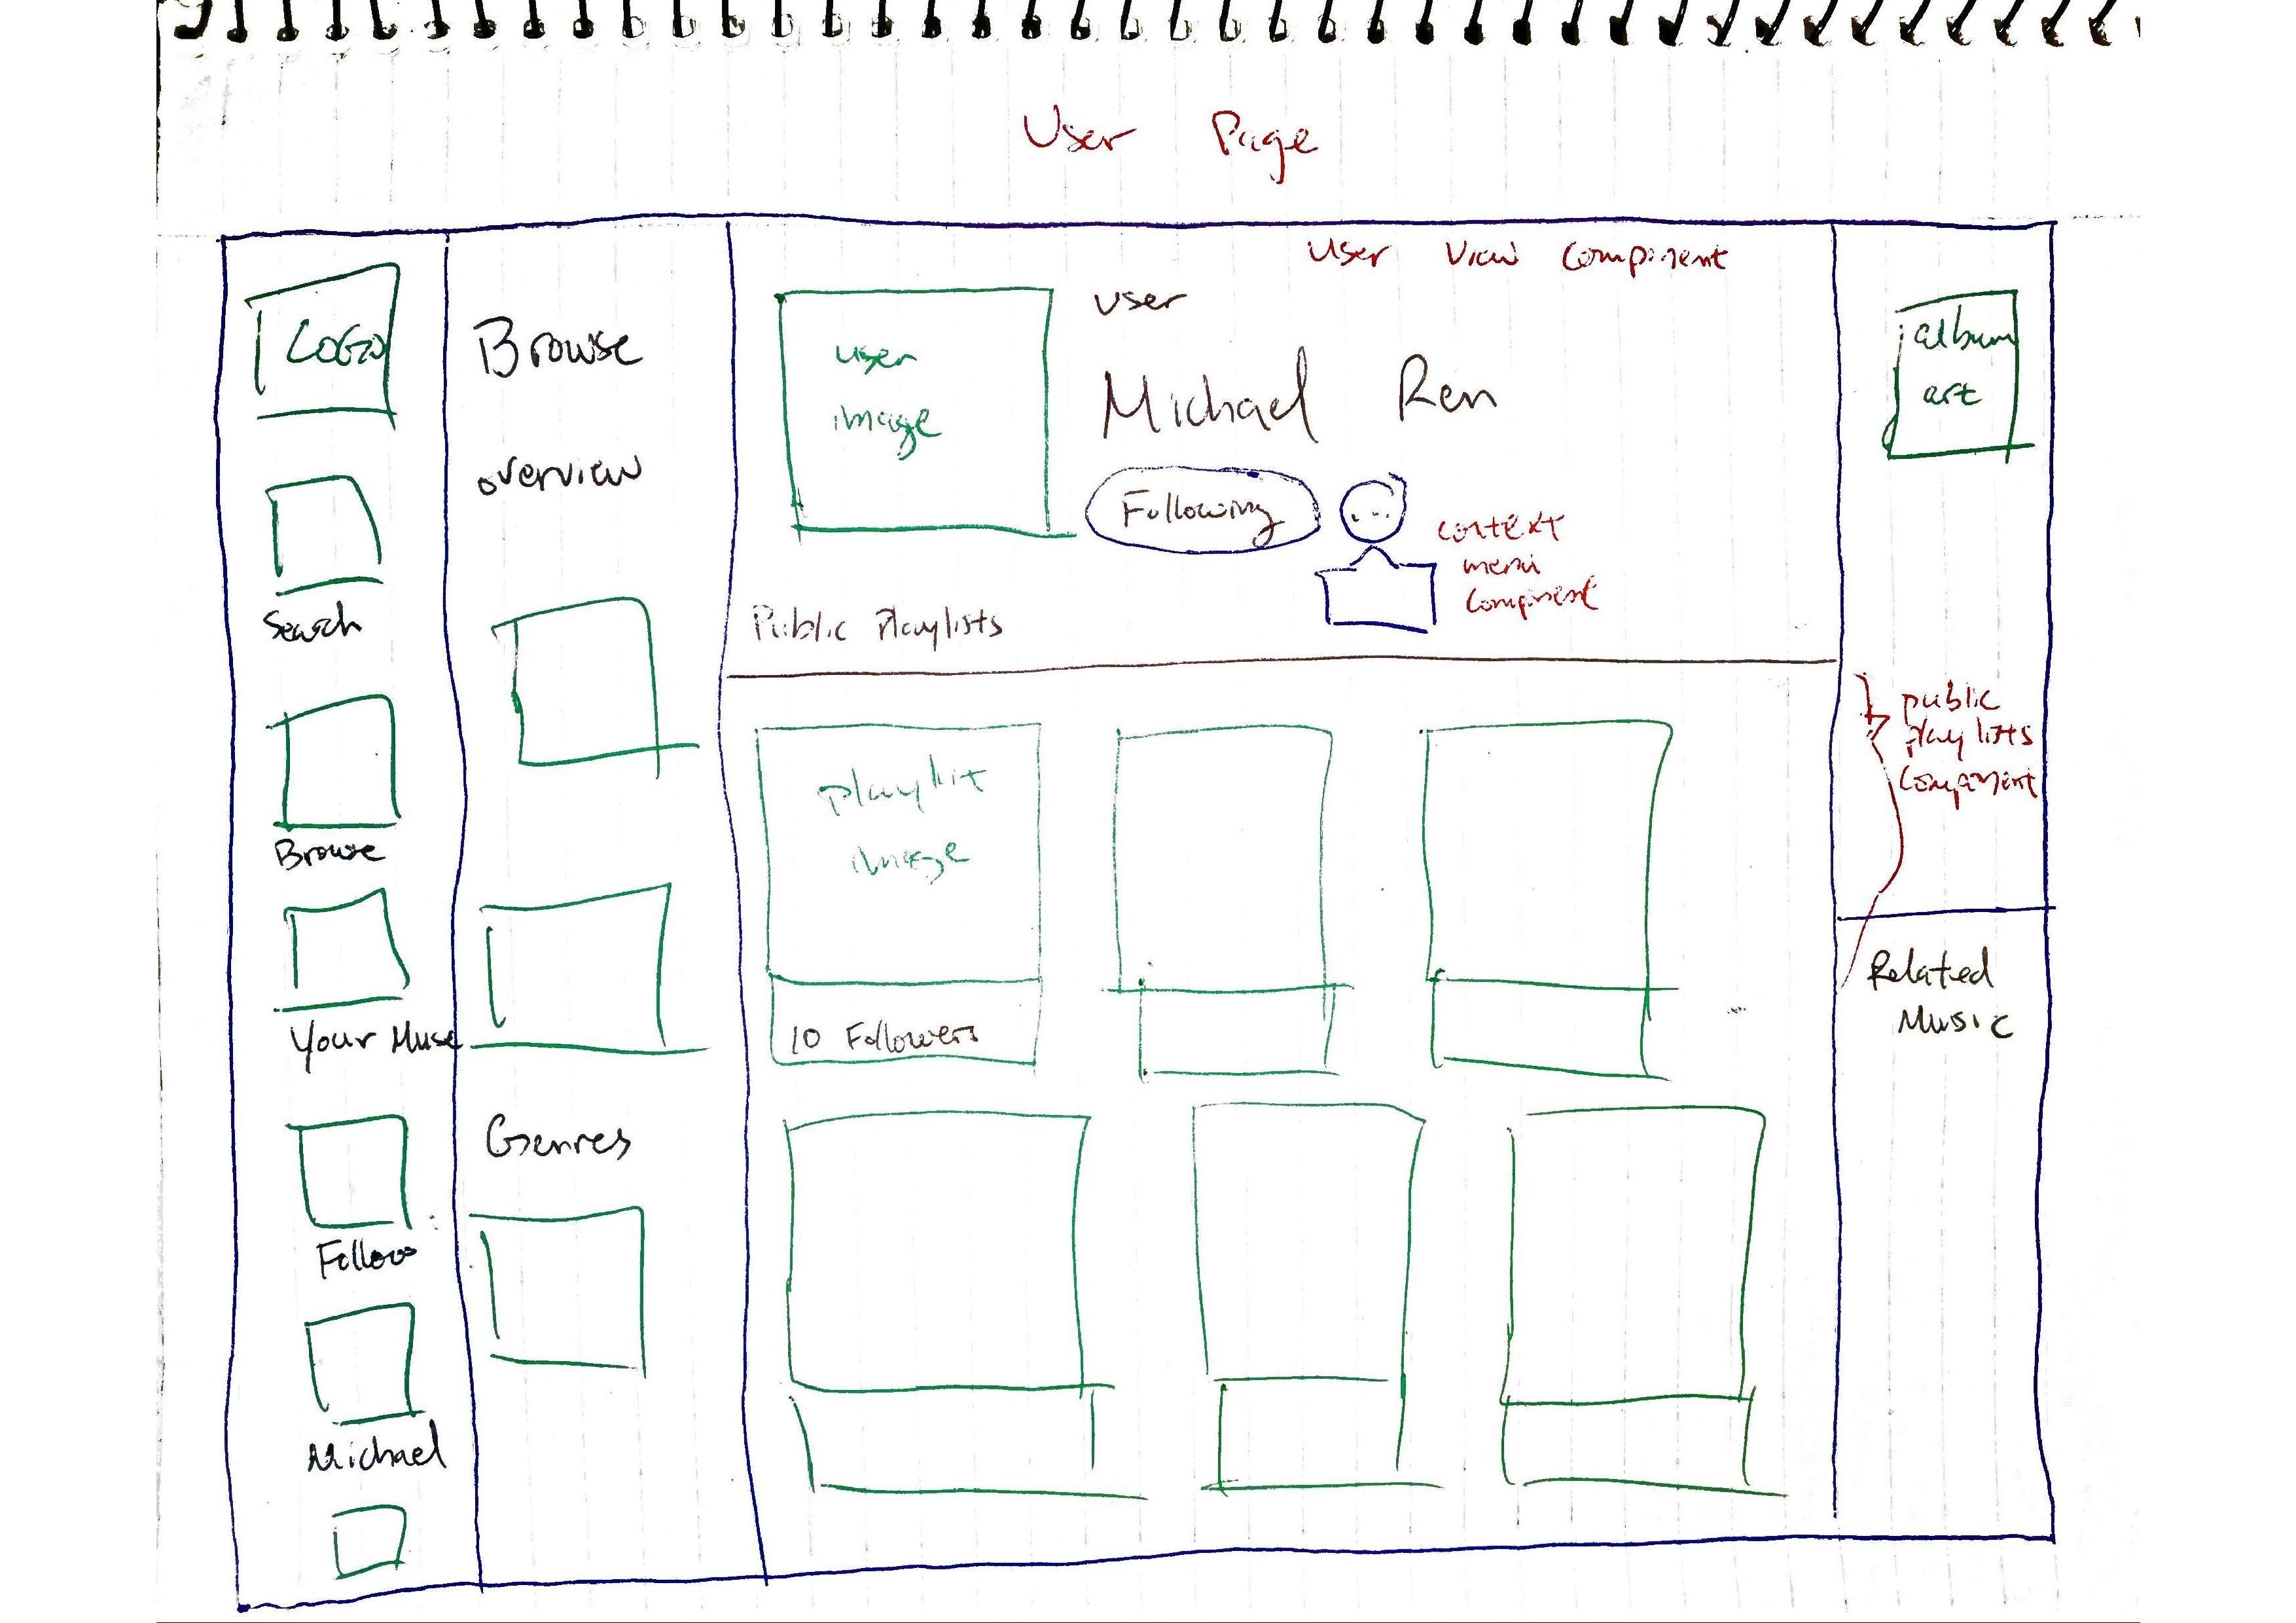 User Page
LOGO
Search
Browse
Your Muse
Follow
Michael
Browse
overview
Genres
User View Component
user
image
user
Michael Ren
Following
...
context
menu
component
Public Playlists
playlist
image
10 Followers
album
art
public
playlists
component
Related
Music